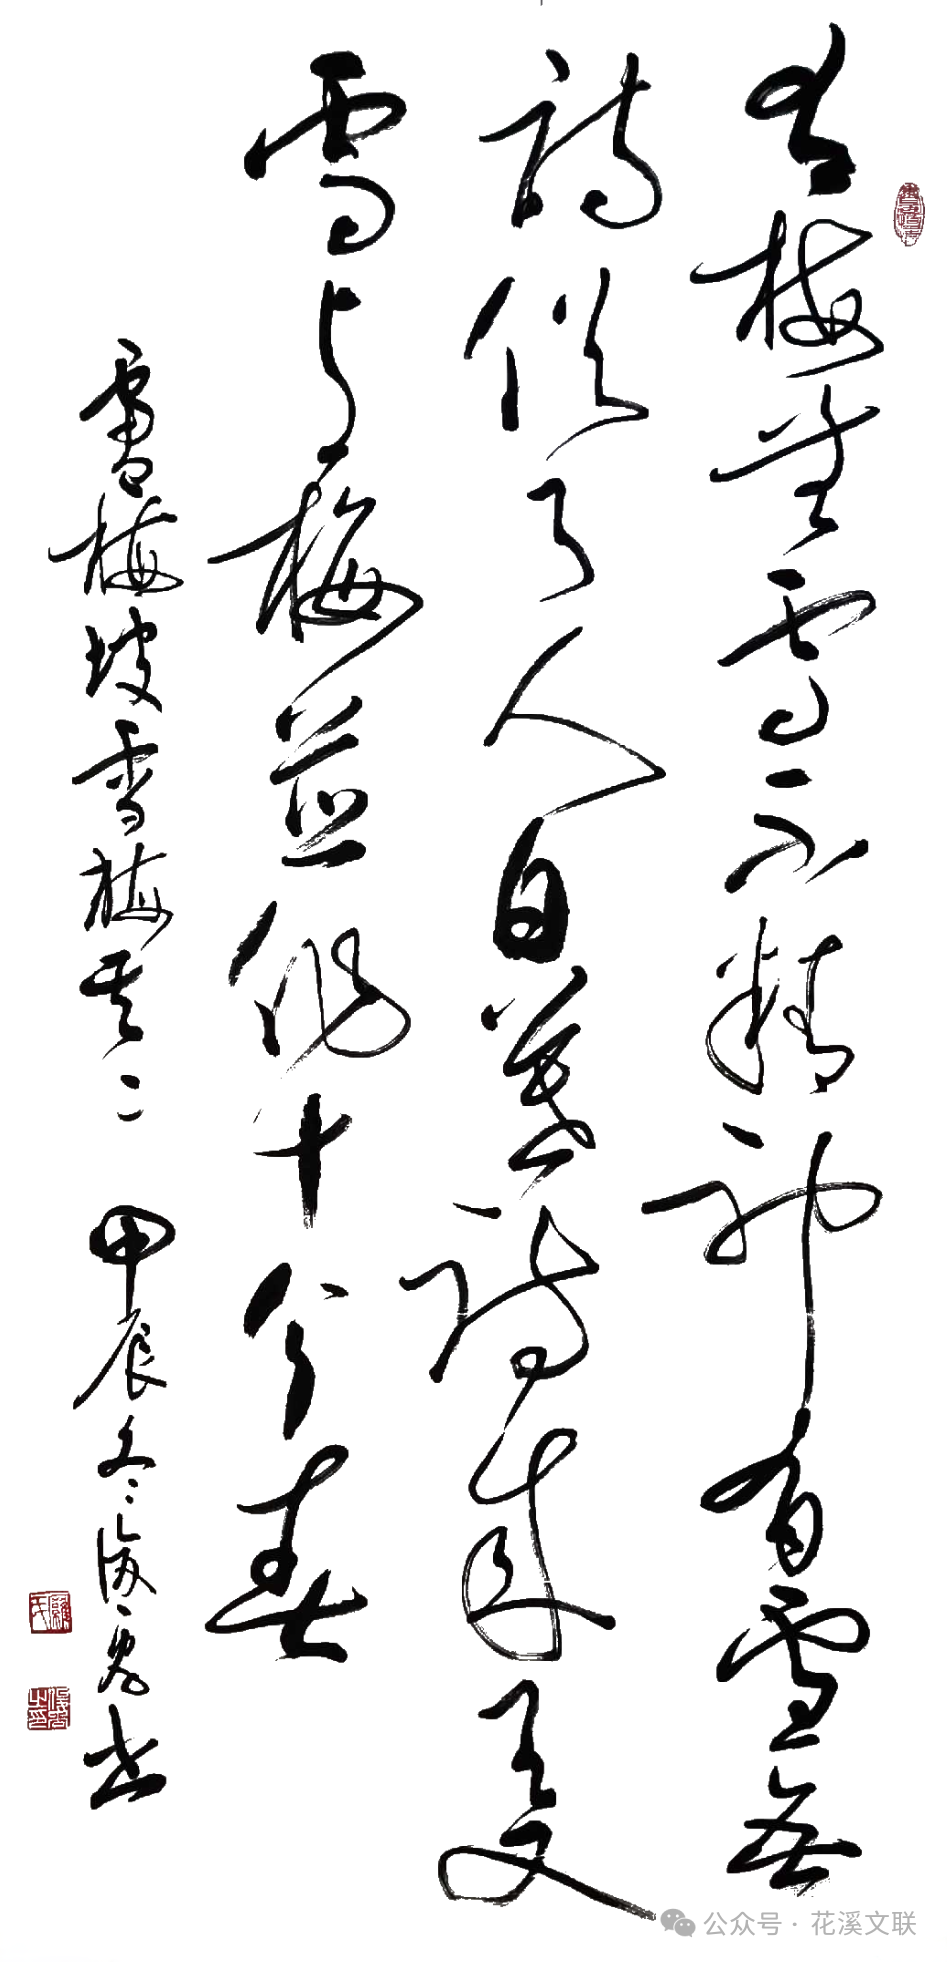 有梅無雪不精神有雪無
詩俗了人日暮詩成天又
雪与梅並作十分春
盧梅坡雪梅其二 甲辰冬 書
公众号·花溪文联